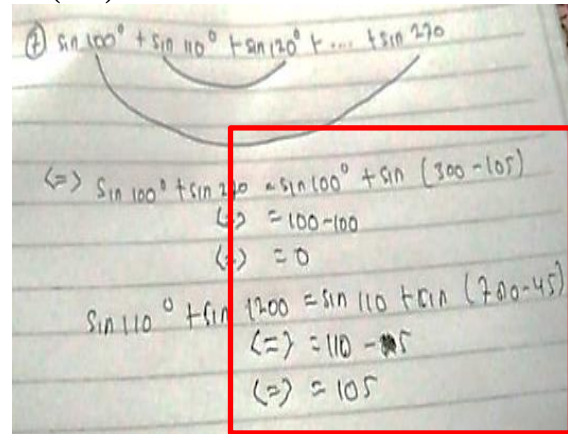 ⑦ sin 100° + sin 110° + sin 120° + .... + sin 270
<=> sin 100° + sin 270 = sin 100° + sin (300-105)
<=> = 100-100
<=> = 0
sin 110° + sin 1200 = sin 110 + sin (700-45)
<=> = 110 - 5
<=> = 105